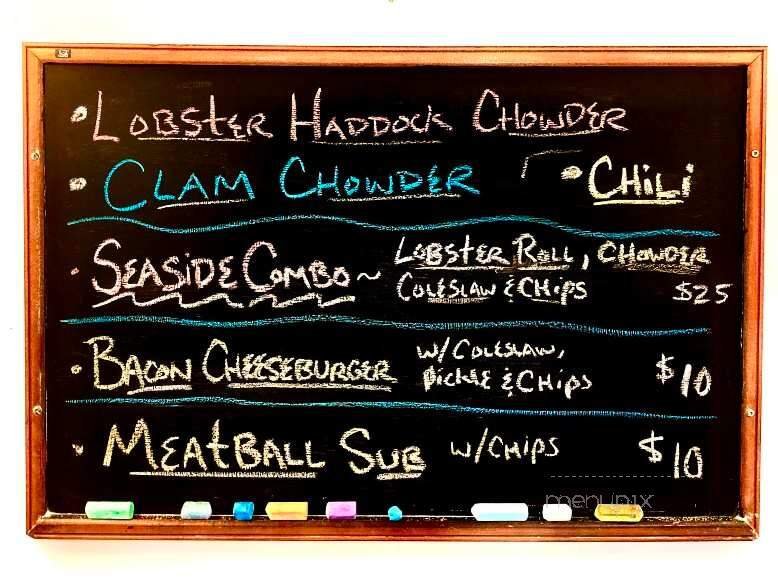 • LOBSTER HADDOCK CHOWDER
• CLAM CHOWDER • CHiLi
• SEASIDE COMBO ~ LOBSTER ROLL, CHOWDER
COLESLAW & CHips $25
• BACON CHEESEBURGER w/COLESLAW,
pickLE & CHips $10
• MEAtBALL SUB w/CHips $10
menupix